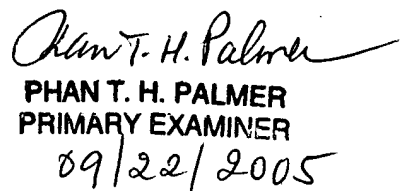 Phan T. H. Palmer
PHAN T. H. PALMER
PRIMARY EXAMINER
09/22/2005